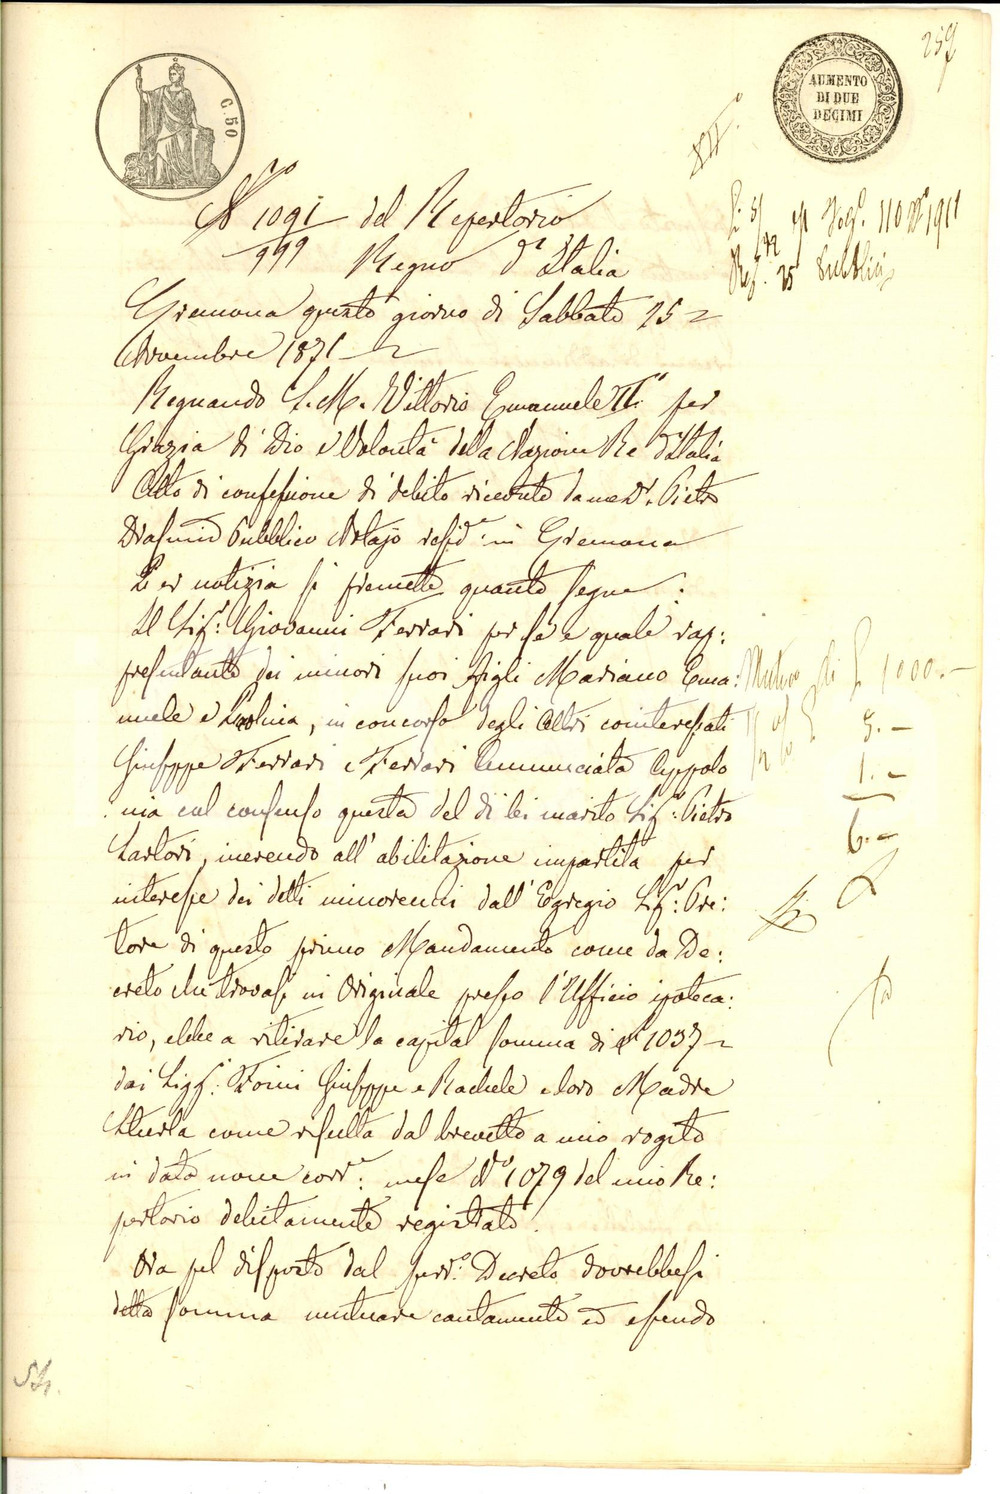 257
C. 50
AUMENTO
DI DUE
DECIMI
N° 1091 del Repertorio
999 Regno d'Italia
Cremona questo giorno di Sabbato 25
Novembre 1871
Regnando S. M. Vittorio Emanuele II° per
Grazia di Dio e Volontà della Nazione Re d'Italia
Atto di confessione di debito ricevuto da me Dr. Pietro
Pubblico Notajo resid.e in Cremona
Per notizia si premette quanto segue:
Il Sig.r Giovanni Ferrari per se e quale rap:
presentante dei minori suoi figli Mariano Ema:
nuele e Paolina, in concorso degli altri cointeressati
Giuseppe Ferrari e Ferrari Annunciata Appolo
nia col consenso questa del di lei marito Sig.r Pietro
Sartori, inerendo all'abilitazione impartita per
interesse dei detti minorenni dall'Egregio Sig.r Pre:
tore di questo primo Mandamento come da De:
creto che trovasi in Originale presso l'Ufficio ipoteca:
rio, ebbe a ritirare la capital somma di 1037
dai Sigg.i Foini Giuseppe e Rachele e loro Madre
come risulta dal brevetto a mio rogito
in data nove corr.e mese N° 1079 del mio Re:
pertorio debitamente registrato.
Ora pel disposto dal sud.o Decreto dovrebbesi
detta somma mutuare cautamente ed essendo
Mutuo di £ 1000.-
5.-
1.-
6.-